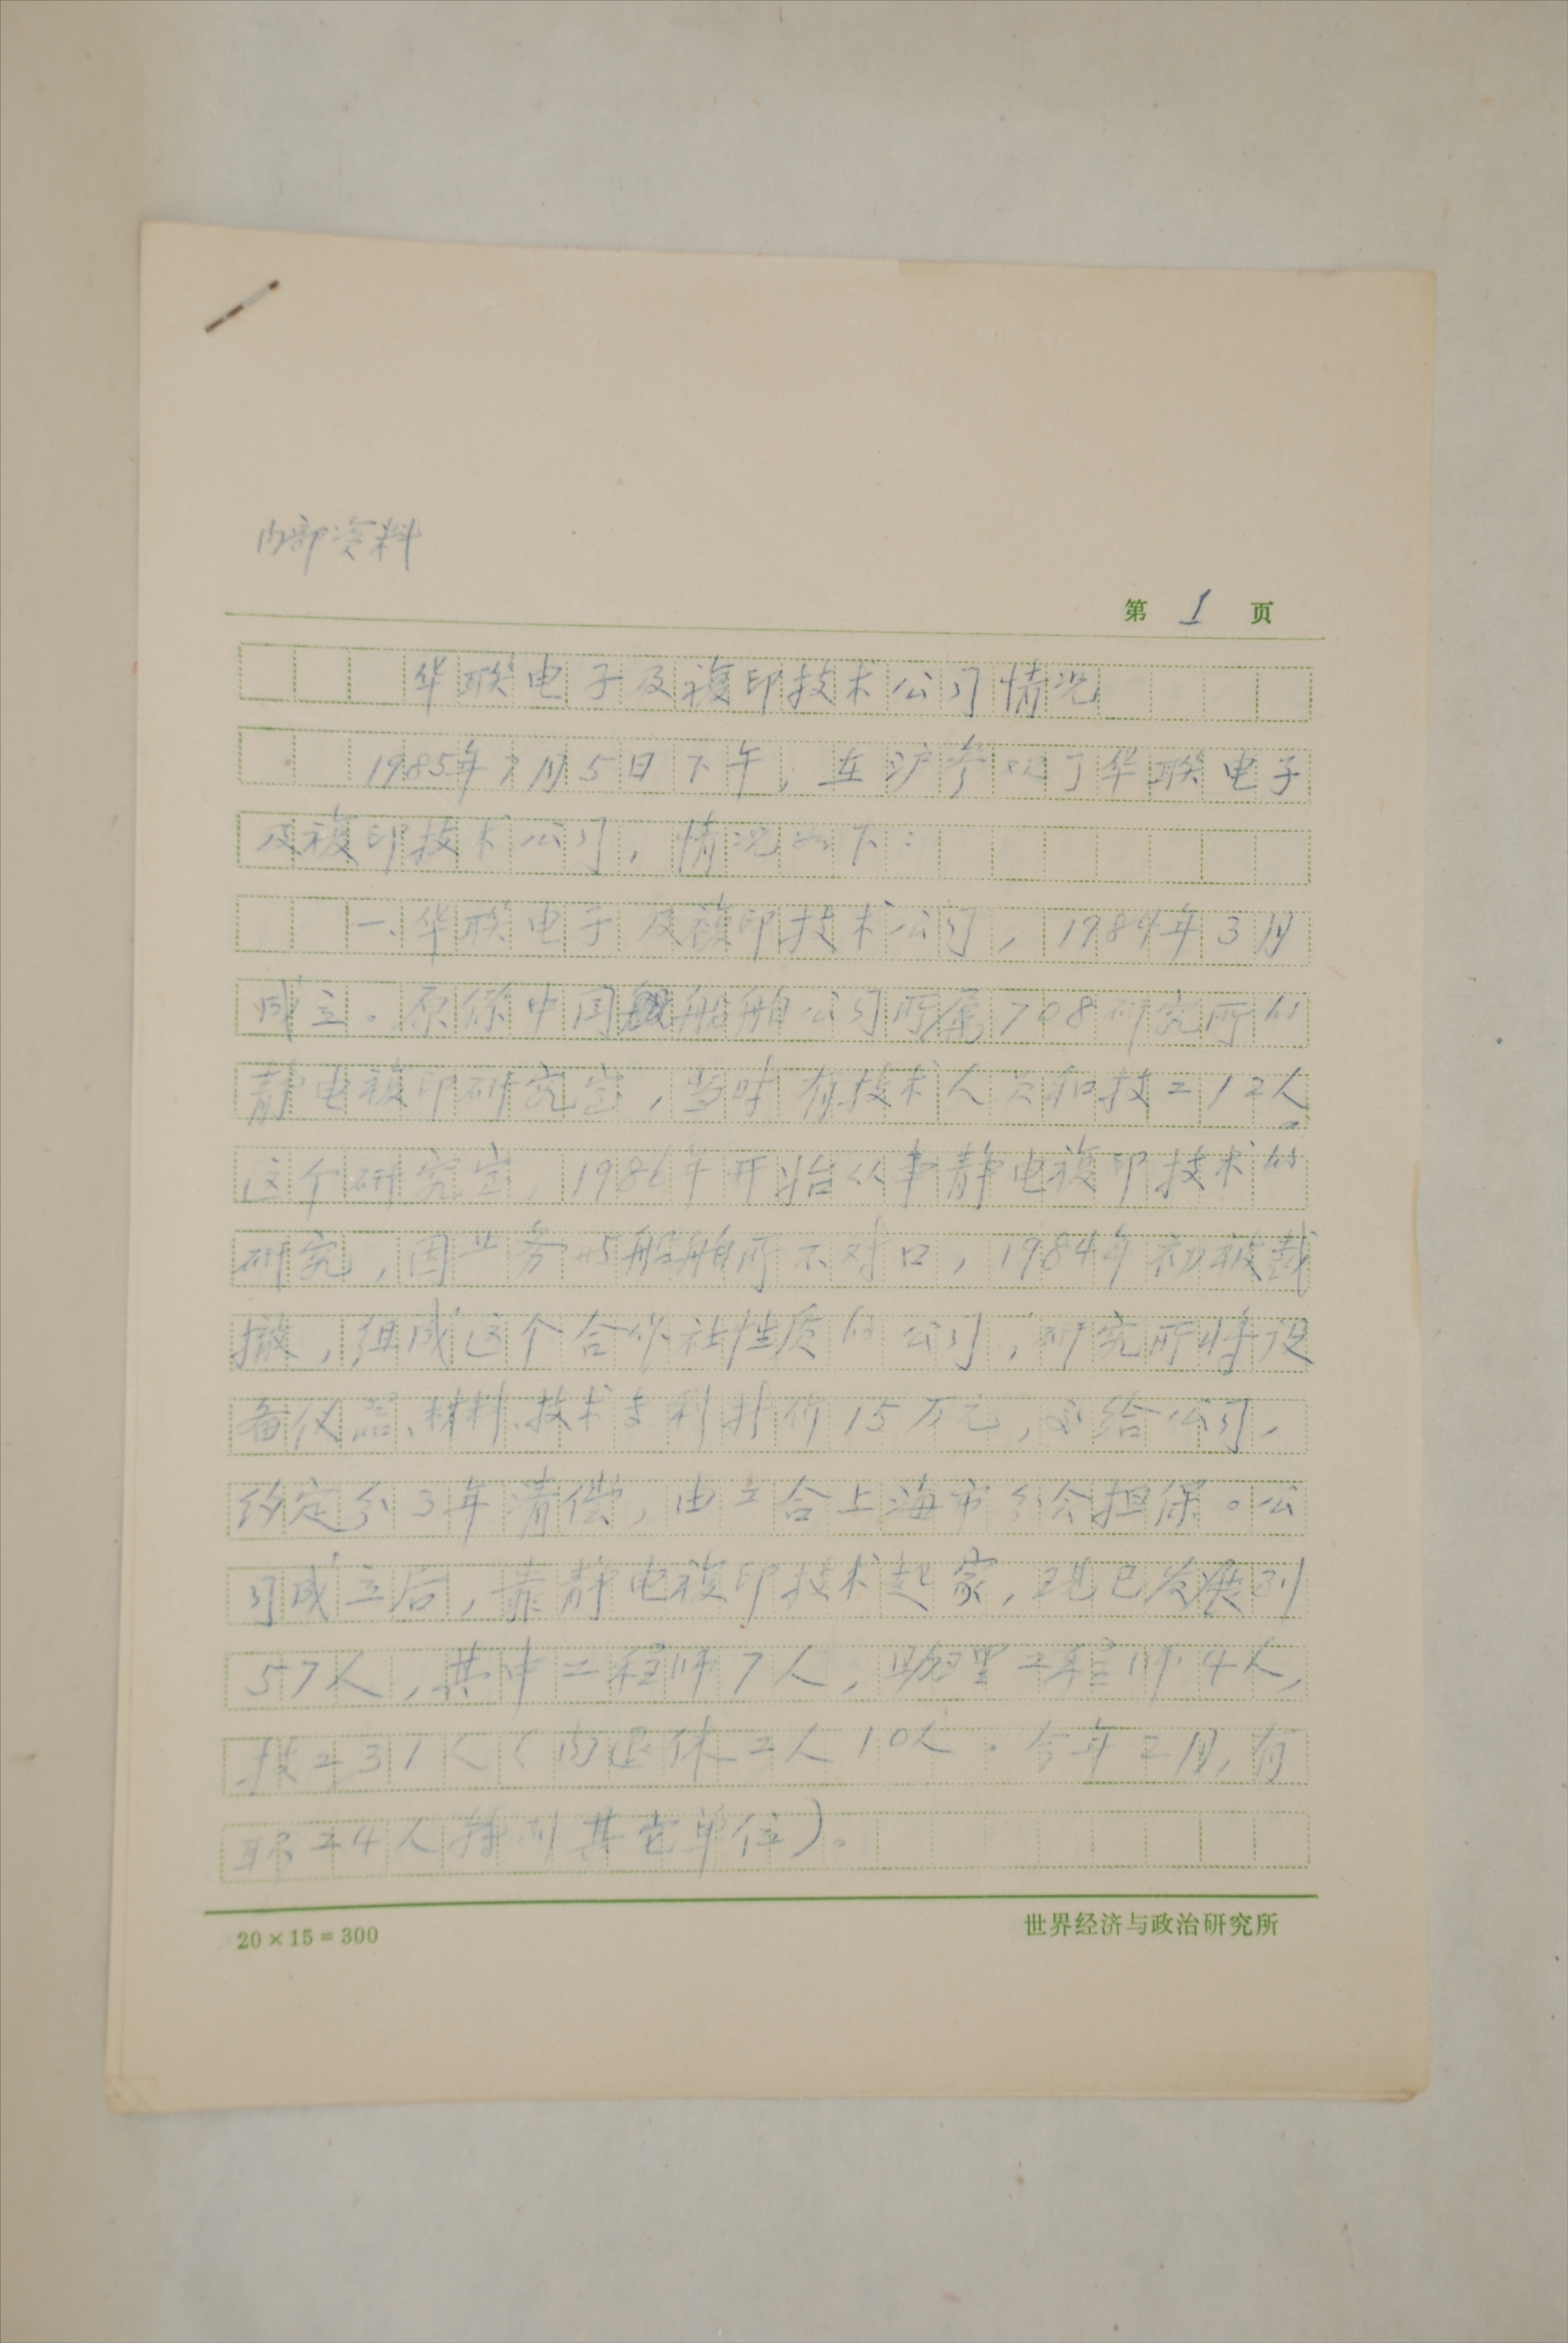 内部资料
第 1 页
华联电子及複印技术公司情况
1985年7月5日下午，在沪参观了华联电子
及複印技术公司，情况如下：
一、华联电子及複印技术公司，1984年3月
成立。原系中国船舶公司所属708研究所的
静电複印研究室，当时有技术人员和技工12人。
这个研究室，1986年开始从事静电複印技术的
研究，因业务与船舶所不对口，1984年初被裁
撤，组成这个合作社性质的公司，研究所将设
备仪器、材料、技术专利折价15万元，交给公司，
约定分3年清偿，由工合上海市分会担保。公
司成立后，靠静电複印技术起家，现已发展到
57人，其中工程师7人，助理工程师4人，
技工31人（内退休工人10人．今年2月，有
职工4人转到其它单位）。
20×15=300
世界经济与政治研究所